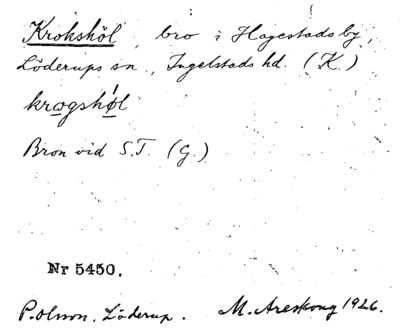 Krokshöl, bro i Hagestads by,
Löderups sn, Ingelstads hd. (K.)
krogshøl
Bron vid S.T. (G.)
Nr 5450.
P. Olsson, Löderup. M. Areskoug 1926.